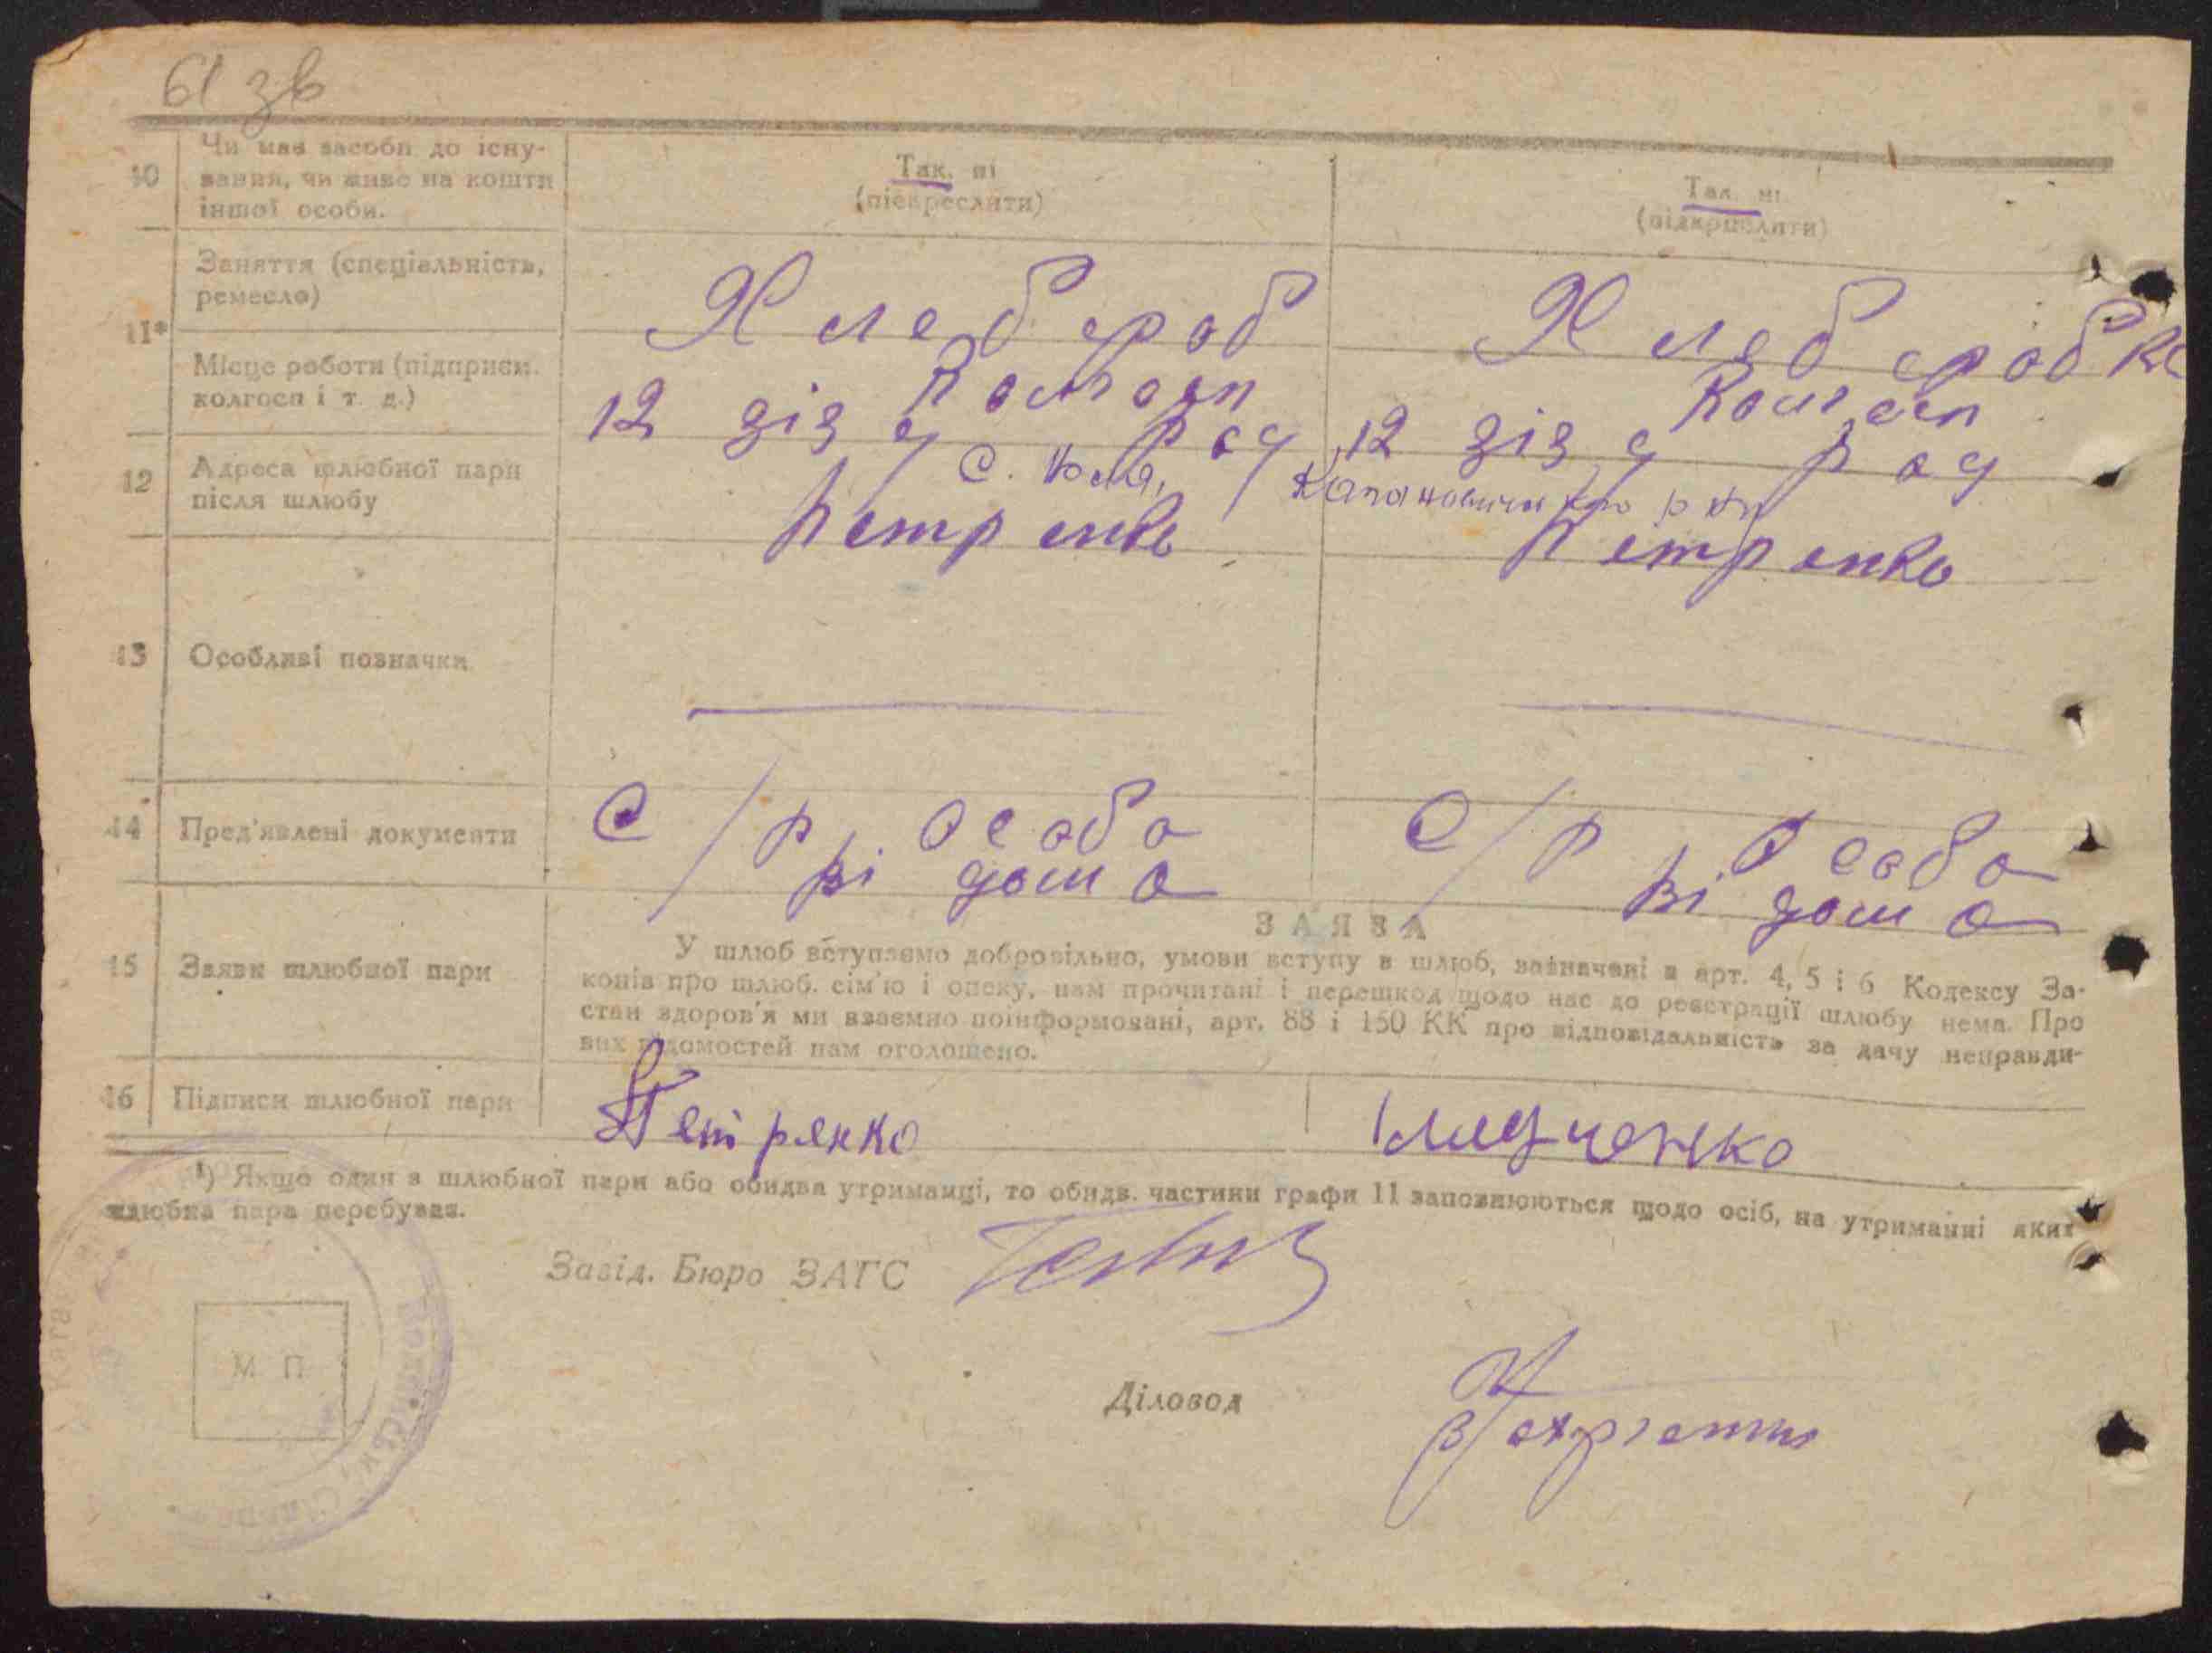 61 зв
10 Чи має засоби до існу-
вання, чи живе на кошти
іншої особи.
Так, ні
(підкреслити)
Так, ні
(підкреслити)
11*
Заняття (спеціальність,
ремесло)
Хлебороб
Хлеборобка
Місце роботи (підприєм.
колгосп і т. д.)
Колгосп
12 зізд Рад
Колгосп
12 зізд Рад
12 Адреса шлюбної пари
після шлюбу
с.
Петренко
Петренко
13 Особливі позначки
14 Пред'явлені документи
С/Р Особо
Відома
С/Р Особо
Відома
15 Заяви шлюбної пари
ЗАЯВА
У шлюб вступаємо добровільно, умови вступу в шлюб, зазначені в арт. 4, 5 і 6 Кодексу За-
конів про шлюб, сім'ю і опеку, нам прочитані і перешкод щодо нас до реєстрації шлюбу нема. Про
стан здоров'я ми взаємно поінформовані, арт. 88 і 150 КК про відповідальність за дачу неправди-
вих відомостей нам оголошено.
16 Підписи шлюбної пари
Петренко
¹) Якщо один з шлюбної пари або обидва утриманці, то обидв. частини графи 11 заповнюються щодо осіб, на утриманні яких
шлюбна пара перебуває.
Завід. Бюро ЗАГС
М П
Діловод